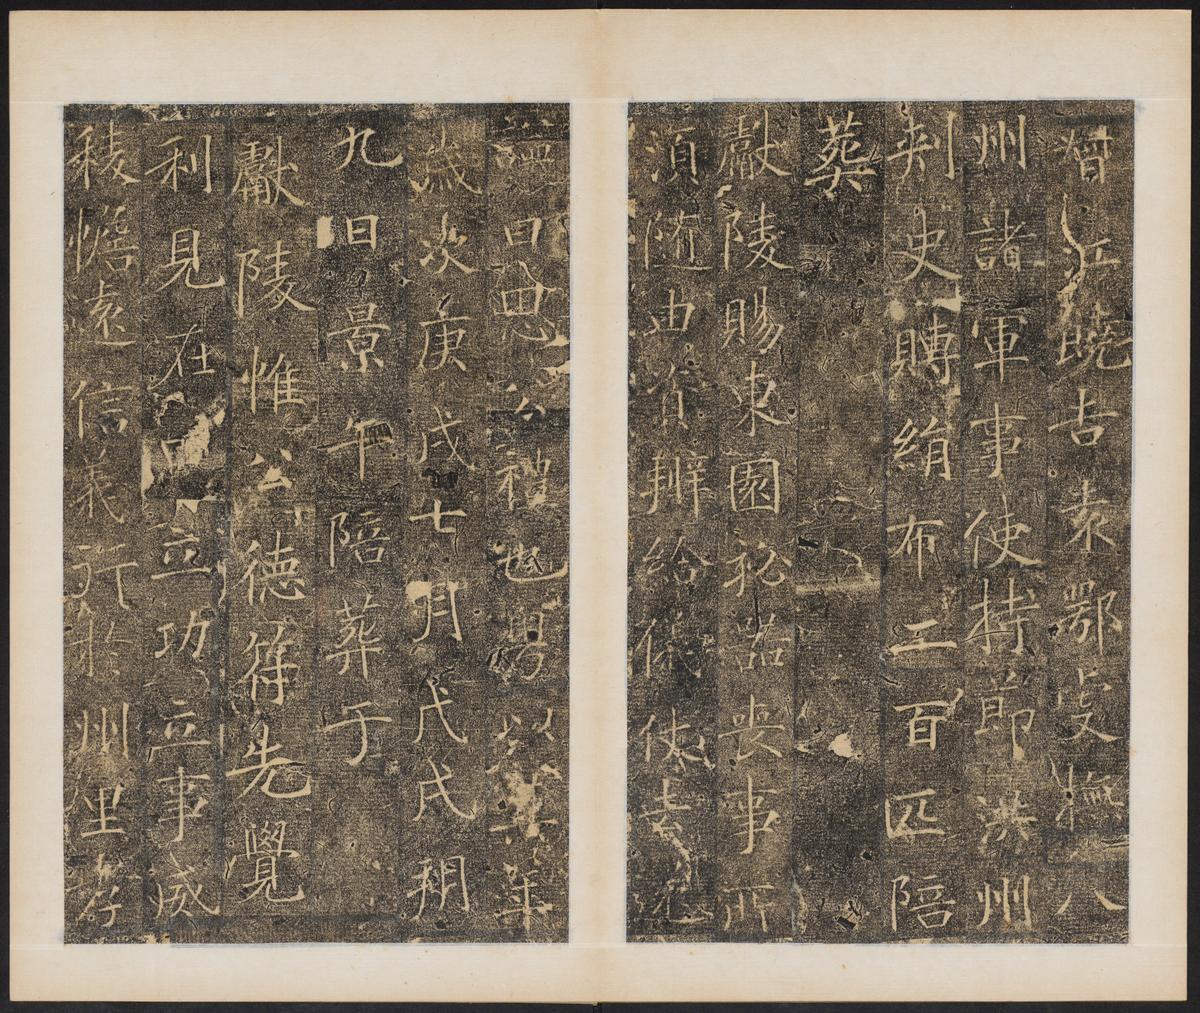 江饒吉袁鄂虔撫八
州諸軍事使持節洪州
刺史賻絹布二百匹陪
葬
獻陵賜東園秘器喪事所
須隨由資辦給儀仗去還
曰公禮也粵以年
歲次庚戌七月戊戌朔
九日景午陪葬于
獻陵惟公德符先覺
利見在立功立事威
稜憺遠信義行於州里孝